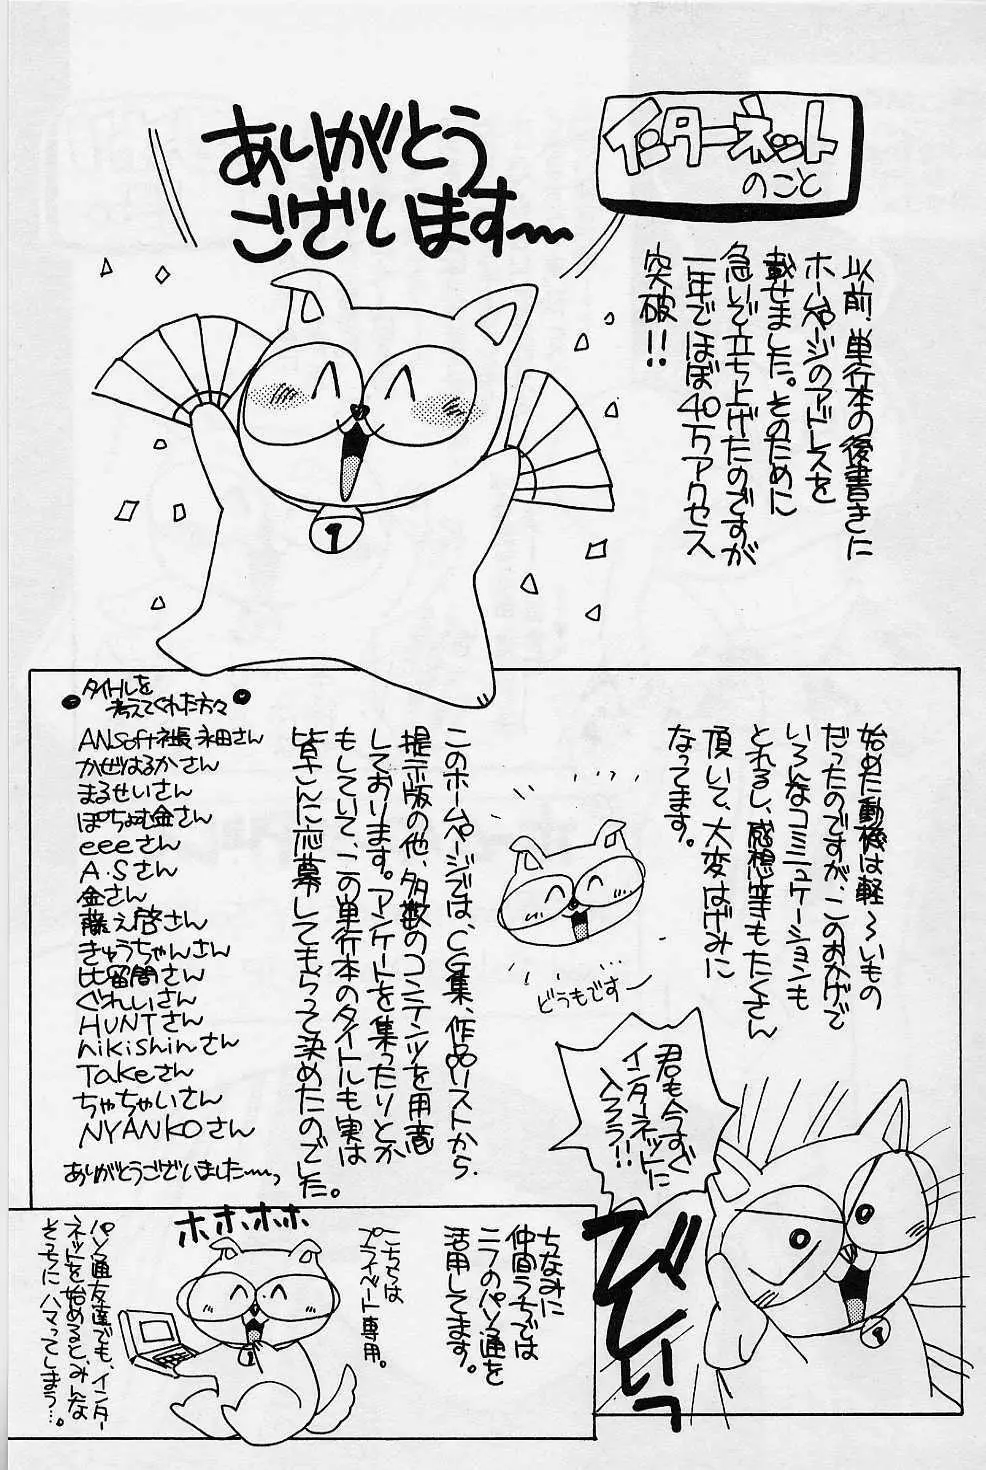 インターネット
のこと
ありがとう
ございます〜
以前、単行本の後書きに
ホームページのアドレスを
載せました。そのために
急いで立ち上げたのですが
一年でほぼ40万アクセス
突破!!
始めた動機は軽〜いもの
だったのですが、このおかげで
いろんなコミュニケーションも
とれるし、感想等もたくさん
頂いて、大変はげみに
なってます。
どうもですー
このホームページでは、CG集、作品リストから、
提示版の他、多数のコンテンツを用意
しております。アンケートを集ったりとか
もしていて、この単行本のタイトルも実は
皆さんに応募してもらって決めたのでした。
タイトルを
考えてくれた方々
ANSoft社長永田さん
かぜはるかさん
まるせいさん
ぽちょむ金さん
eeeさん
A.Sさん
金さん
藤え啓さん
きゅうちゃんさん
比留間さん
ぐれいさん
HUNTさん
hikishinさん
Takeさん
ちゃちゃいさん
NYANKOさん
ありがとうございました〜っ
君も今すぐ
インターネットに
入ろう!!
びしいっ
ちなみに
仲間うちでは
ニフのパソ通を
活用してます。
こちらは
プライベート専用。
ホホホホ
パソ通友達でも、インター
ネットを始めると、みんな
そっちにハマってしまう…。